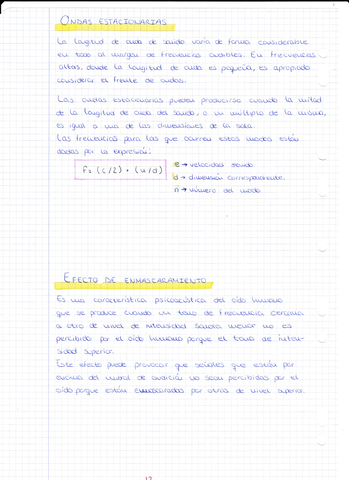 ONDAS ESTACIONARIAS
La longitud de onda de sonido varía de forma considerable
en todo el margen de frecuencias audibles. En frecuencias
altas, donde la longitud de onda es pequeña, es apropiado
considerar el frente de ondas.
Las ondas estacionarias pueden producirse cuando la mitad
de la longitud de onda del sonido, o un múltiplo de la misma,
es igual a una de las dimensiones de la sala.
Las frecuencias para las que ocurren estos modos están
dadas por la expresión:
F = (c/2) · (n/d)
c → velocidad sonido.
d → dimensión correspondiente.
n → número del modo
EFECTO DE ENMASCARAMIENTO
Es una característica psicoacústica del oído humano
que se produce cuando un tono de frecuencia cercana
a otro de nivel de intensidad sonora menor no es
percibido por el oído humano porque el tono de inten-
sidad superior.
Este efecto puede provocar que señales que están por
encima del umbral de audición no sean percibidas por el
oído porque están enmascaradas por otras de nivel superior.